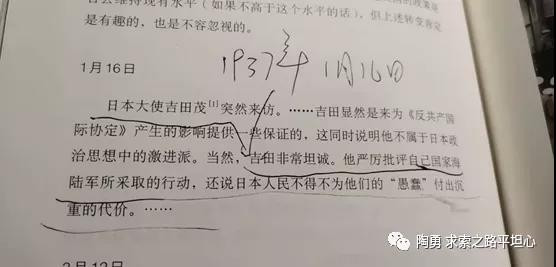 会维持现有水平（如果不高于这个水平的话），但上述转变肯定
是有趣的，也是不容忽视的。
1937年1月16日
1月16日
日本大使吉田茂[1]突然来访。……吉田显然是来为《反共产国
际协定》产生的影响提供一些保证的，这同时说明他不属于日本政
治思想中的激进派。当然，吉田非常坦诚。他严厉批评自己国家海
陆军所采取的行动，还说日本人民不得不为他们的“愚蠢”付出沉
重的代价。……
陶勇 求索之路平坦心